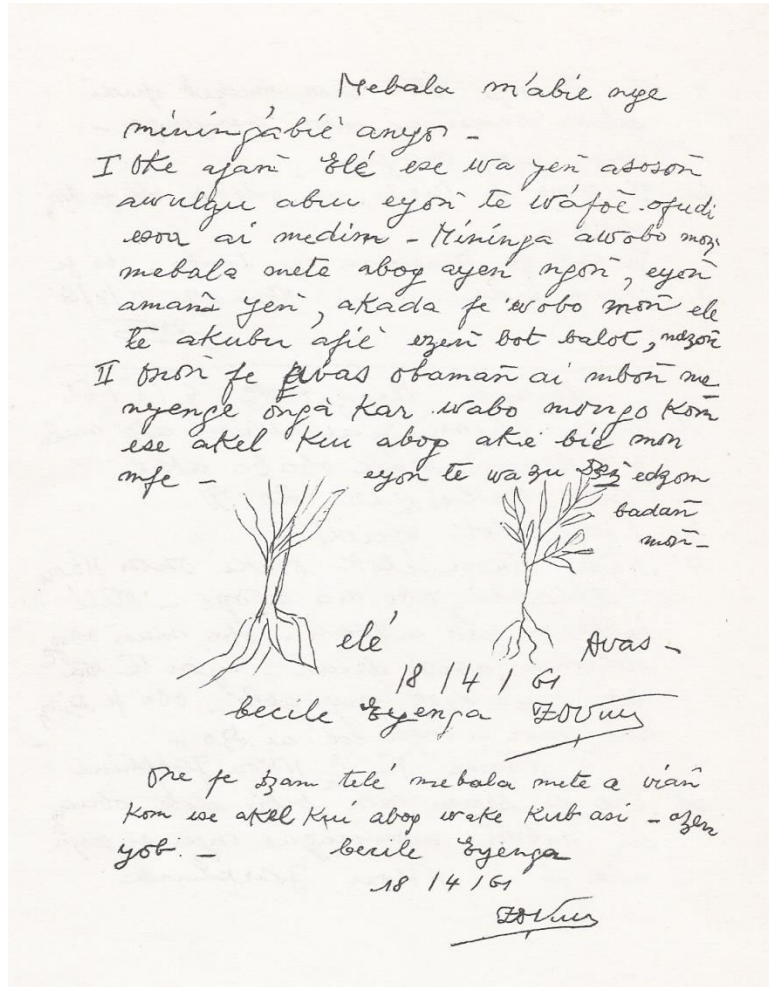 Mebala m'abié nge
míníng'ábiè anyo -
I Oke ajañ Elé ese wa yeñ asosoñ
awulgu abui eyoñ te wáfoè ofudi
esoa ai medim - Míninga awobo
mebala mete abog ayeñ ngoñ, eyoñ
amanã yeñ, akada fe wobo moñ ele
te akubu afiè ezeñ bot balot,
II Onoñ fe avas obamañ ai mboñ me
nyenge õngà kar wabo mongo kom
ese akel kui abog akè biè mon
mfe - eyon te wa zu edzom
badañ
moñ -
elé
Avas -
18 / 4 / 61
Cecile Eyenga
One fe dzam telé mebala mete a viañ
kom ese akel kuí abog wake kub asi - ezen
yob. - Cecile Eyenga
18 / 4 / 61